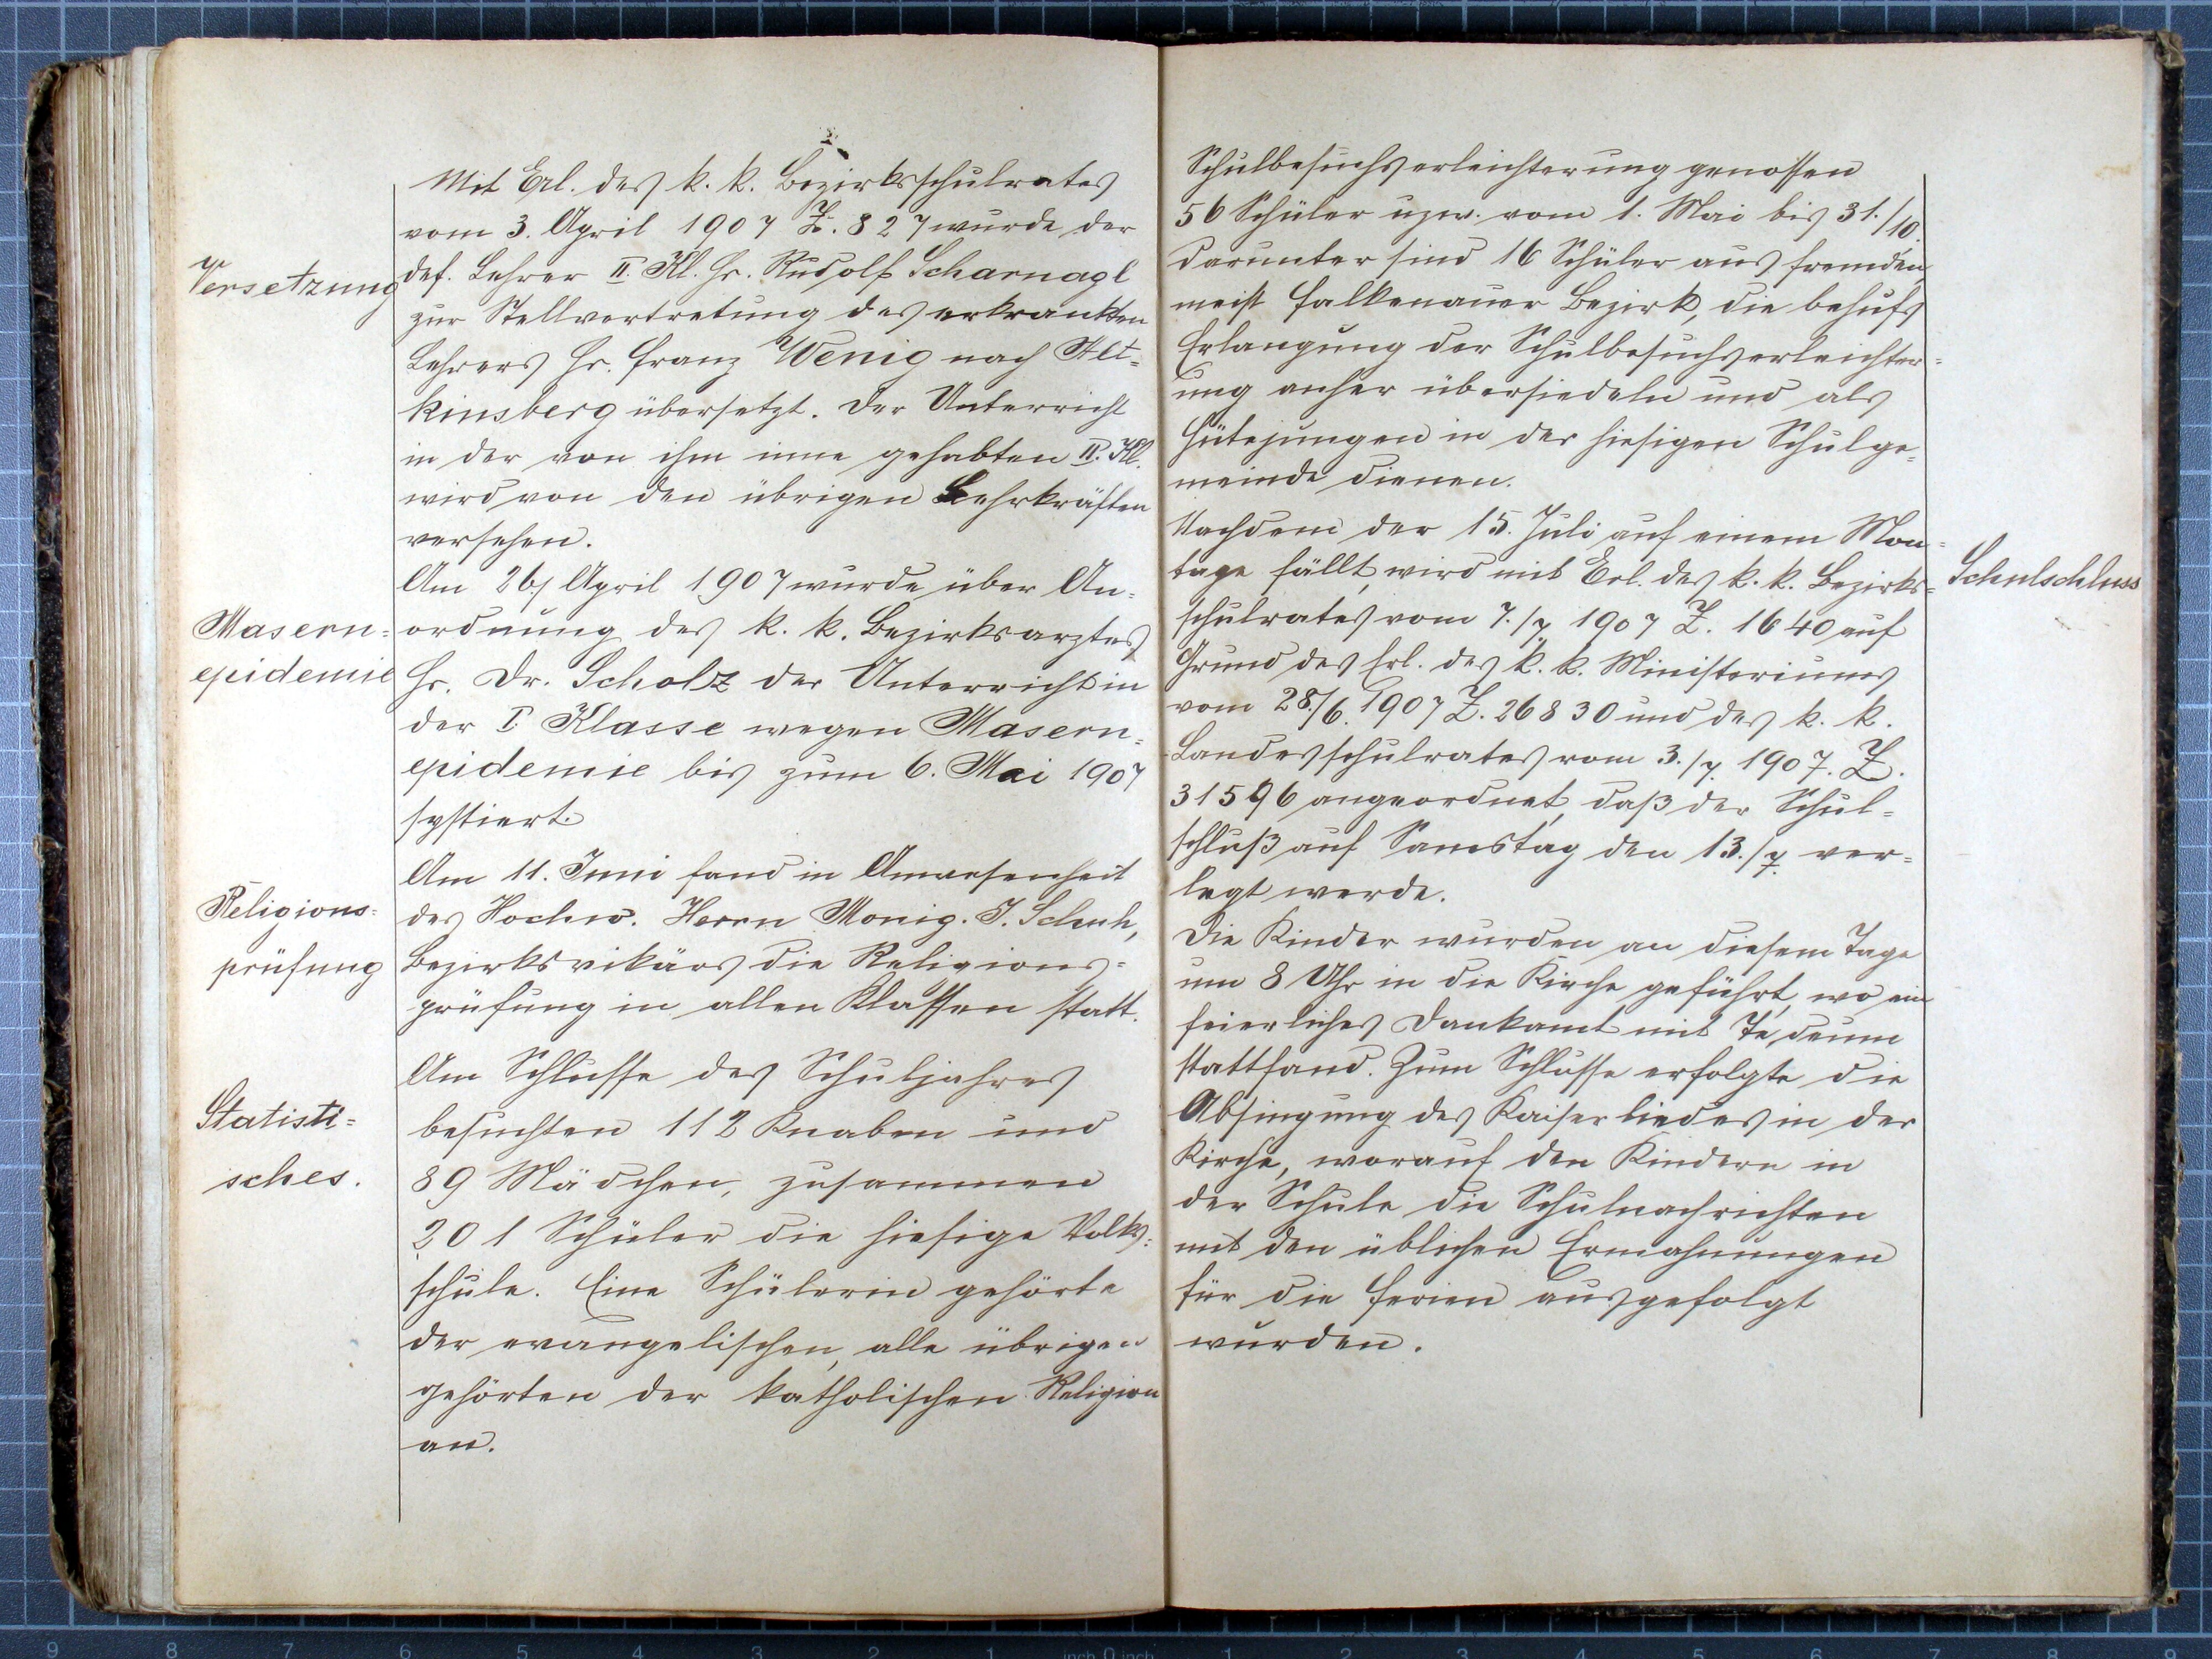 Mit Erl. des k. k. Bezirksschulrates
vom 3. April 1907 Z. 827 wurde der
Versetzung
def. Lehrer II. Kl. Hr. Rudolf Scharnagl
zur Stellvertretung des erkrankten
Lehrers Hr. Franz Wenig nach Alt-
kinsberg übersetzt. Der Unterricht
in der von ihm inne gehabten II. Kl.
wird von den übrigen Lehrkräften
versehen.
Am 26/ April 1907 wurde über An-
Masern-
epidemie
ordnung des k. k. Bezirksarztes
Hr. Dr. Scholz der Unterricht in
der I. Klasse wegen Masern-
epidemie bis zum 6. Mai 1907
systiert.
Am 11. Juni fand in Anwesenheit
Religions-
prüfung
des Hochw. Herrn Monig. J. Schuh,
Bezirksvikärs die Religions-
prüfung in allen Klassen statt.
Statisti-
sches.
Am Schlusse des Schuljahres
besuchten 112 Knaben und
89 Mädchen, zusammen
201 Schüler die hiesige Volks-
schule. Eine Schülerin gehörte
der evangelischen, alle übrigen
gehörten der katholischen Religion
an.
Schulbesuchserleichterung genossen
56 Schüler uzw. vom 1. Mai bis 31./10.
darunter sind 16 Schüler aus fremden
meist Falkenauer Bezirk, die behufs
Erlangung der Schulbesuchserleichter-
ung anher übersiedeln und als
Hütejungen in der hiesigen Schulge-
meinde dienen.
Nachdem der 15. Juli auf einem Mon-
tage fällt, wird mit Erl. des k. k. Bezirks-
Schulschluss
schulrates vom 7./7. 1907 Z. 1640 auf
Grund des Erl. des k. k. Ministeriums
vom 28./6. 1907 Z. 26830 und des k. k.
Landesschulrates vom 3./7. 1907. Z.
31596 angeordnet, daß der Schul-
schluß auf Samstag den 13./7. ver-
legt werde.
Die Kinder wurden an diesem Tage
um 8 Uhr in die Kirche geführt, wo ein
feierliches Dankamt mit Te deum
stattfand. Zum Schlusse erfolgte die
Absingung des Kaiserliedes in der
Kirche, worauf den Kindern in
der Schule die Schulnachrichten
mit den üblichen Ermahnungen
für die Ferien ausgefolgt
wurden.
9 8 7 6 5 4 3 2 1 inch 0 inch 1 2 3 4 5 6 7 8 9